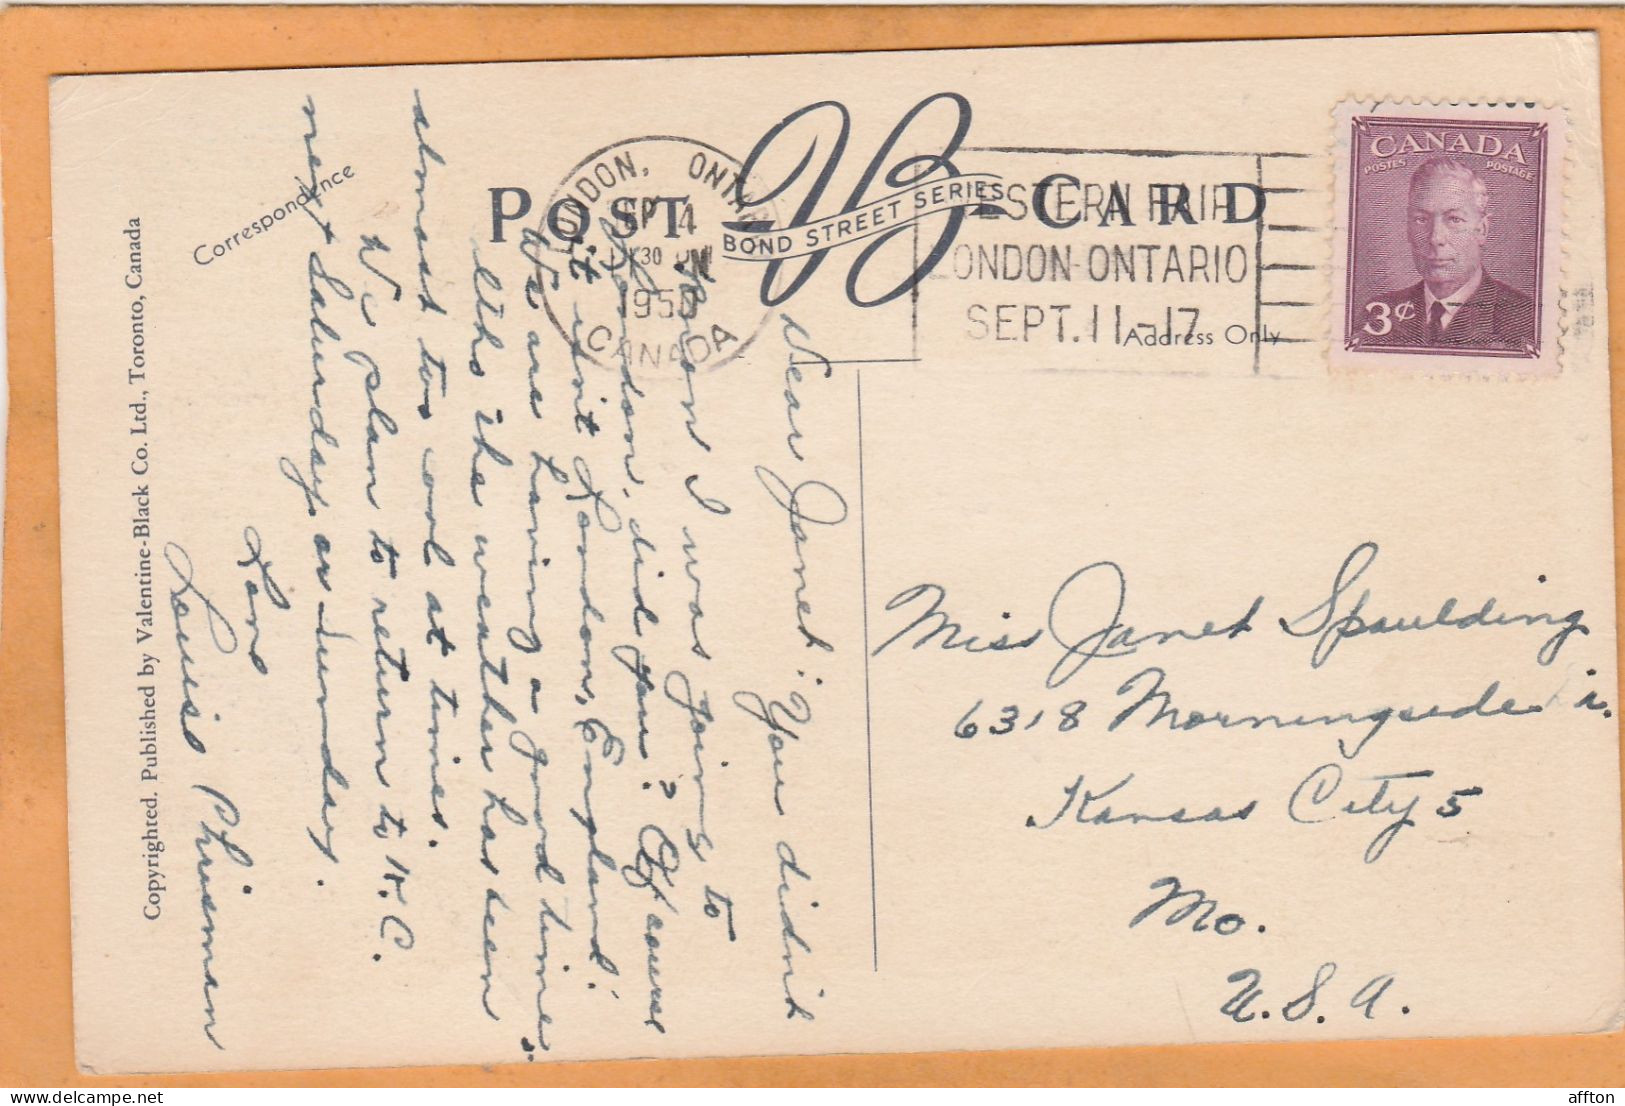 POST CARD
VB
BOND STREET SERIES
Correspondence
Address Only
LONDON, ONTARIO
SEP 4
30 PM
1950
CANADA
WESTERN FAIR
LONDON-ONTARIO
SEPT. 11-17
CANADA
POSTES POSTAGE
3¢
Dear Janet: You didnt
know I was going to
London, did you? Of course
it isn't London, England!
We are having a good time
altho the weather has been
almost too cool at times.
We plan to return to K.C.
next Saturday or Sunday.
Love
Louise Chrisman
Miss Janet Spaulding
6318 Morningside Dr.
Kansas City 5
Mo.
U.S.A.
Copyrighted. Published by Valentine-Black Co. Ltd., Toronto, Canada
affton